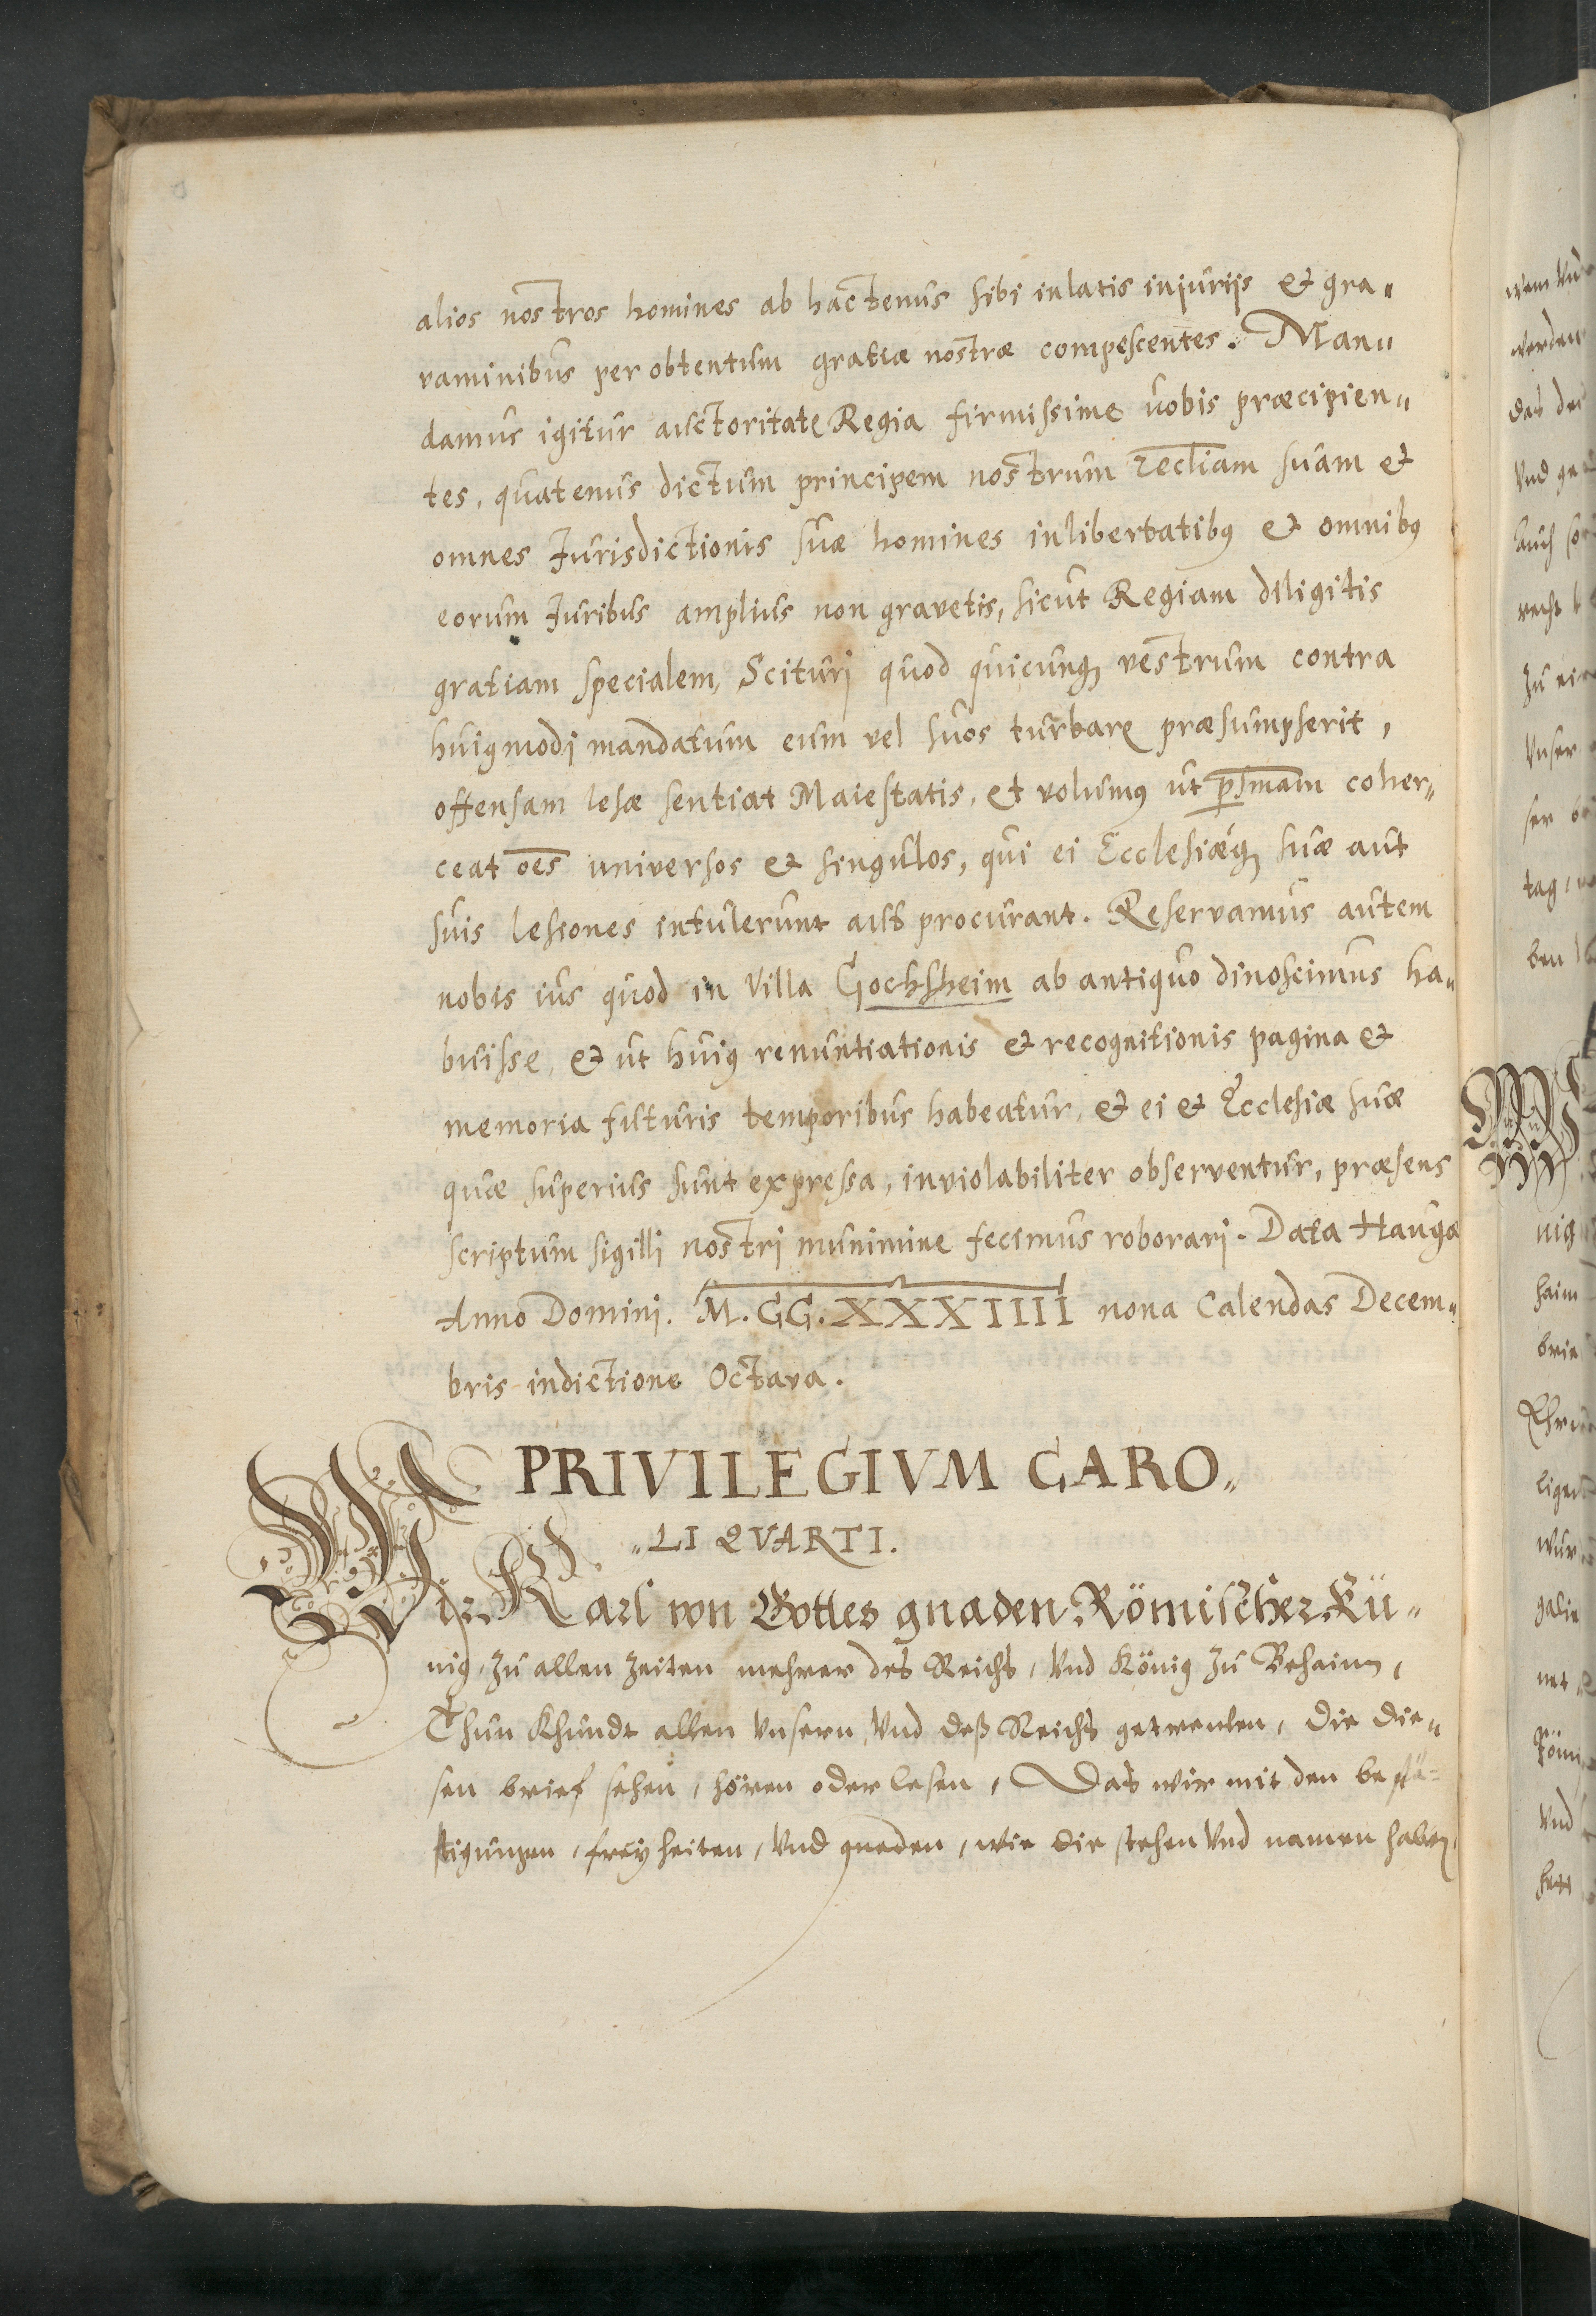 alios nostros homines ab hactenus sibi inlatis injurijs & gra„
vaminibus per obtentum gratiæ nostræ compescentes. Man„
damus igitur auctoritate Regia firmissime vobis præcipien„
tes, quatenus dictum principem nostrum ecctiam suam &
omnes Jurisdictionis suæ homines in libertatibꝰ & omnibꝰ
eorum Juribus amplius non gravetis, sicut Regiam diligitis
gratiam specialem, Scituri quod quicunqꝫ vestrum contra
huiꝰmodi mandatum eum vel suos turbare præsumpserit,
offensam lesæ sentiat Maiestatis, et volumꝰ ut coher„
ceat oēs universos & singulos, qui ei Ecclesiǽqꝫ suæ aut
suis lesiones intulerunt aut procurant. Reservamus autem
nobis ius quod in Villa Gochsheim ab antiquo dinoscimus ha„
buisse, & ut huiꝰ renuntiationis & recognitionis pagina &
memoria futuris temporibus habeatur, & ei & Ecclesiæ suæ
quæ superius sunt expressa, inviolabiliter observentur, præsens
scriptum sigilli nostri munimine fecimus roborari. Data Hauga
Anno Domini. M. CC. XXXIIII nona Calendas Decem„
bris indictione Octava.
PRIVILEGIVM CARO„
„LI QVARTI.
Wir Karl von Gottes gnaden Römischer Kü„
nig, zu allen zeiten mehrer des Reichs, Vnd König zu Behaim,
Thun khundt allen Vnsern, Vnd deß Reichs getreuen, die die„
sen brief sehen, hören oder lesen, Das wir mit den bestä=
tigungen, freyheiten, Vnd gnaden, wie die stehen Vnd namen haben,